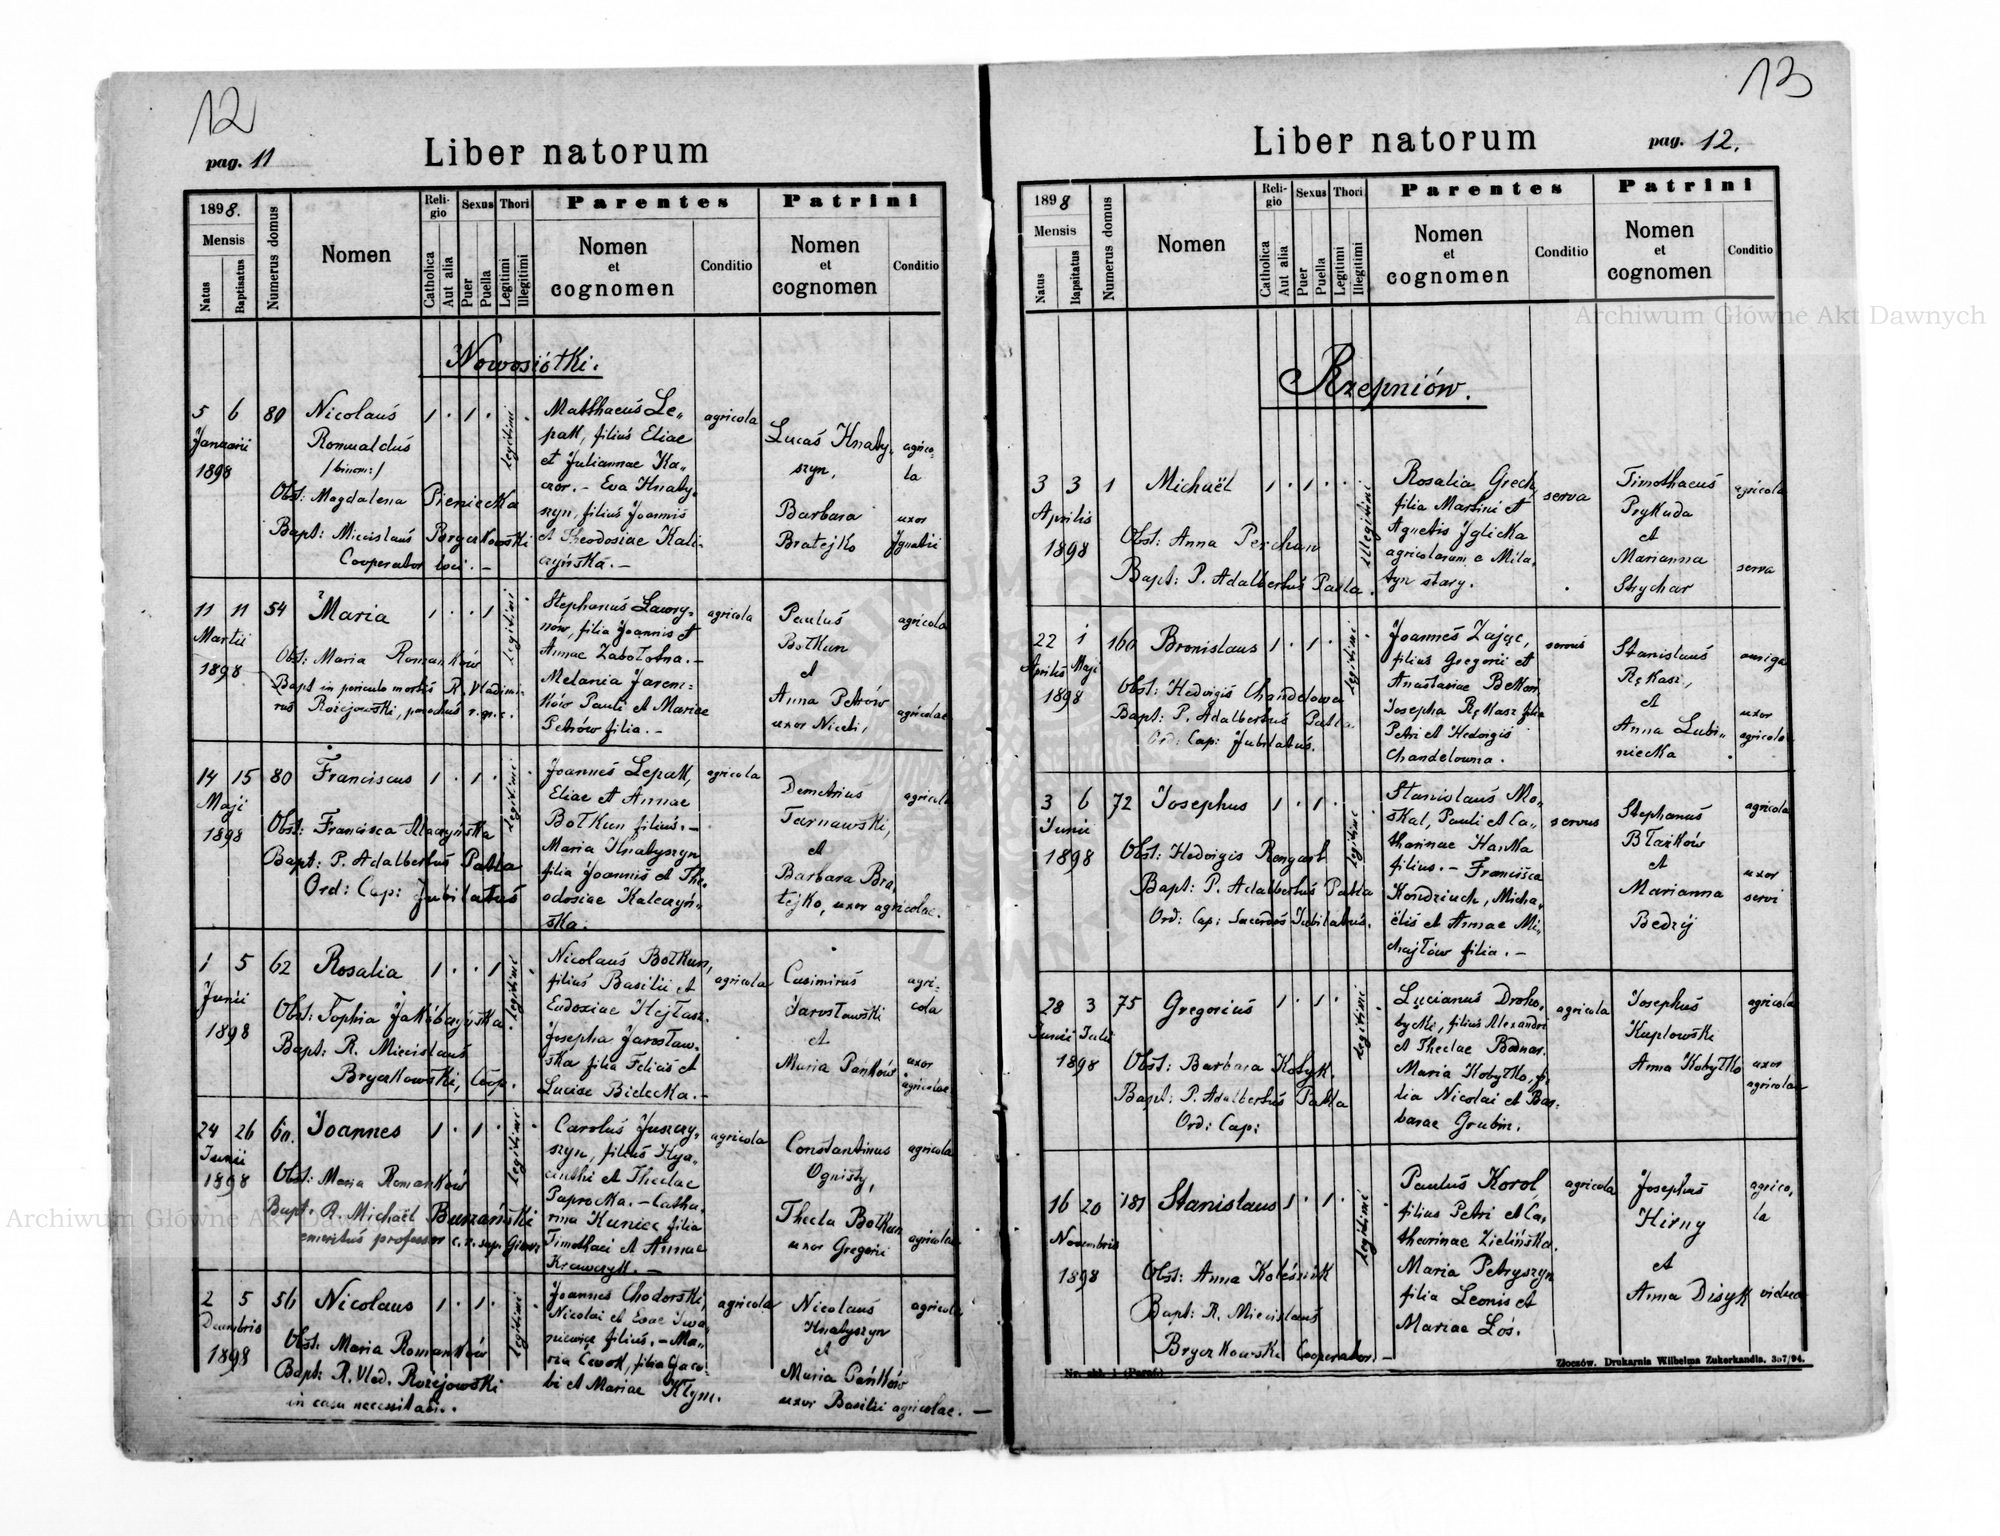 12
pag. 11
Liber natorum
1898.
Mensis
Natus
Baptisatus
Numerus domus
Nomen
Religio
Catholica
Aut alia
Sexus
Puer
Puella
Thori
Legitimi
Illegitimi
Parentes
Nomen
et
cognomen
Conditio
Patrini
Nomen
et
cognomen
Conditio
Nowosiółki.
5 6 80 Nicolaus 1 . 1 .
Januarii
1898
Romualdus
/binom:/
Obst: Magdalena Pieniecka
Bapt: Miecislaus Bryczkowski
Cooperator loci. –
legitimi
Matthaeus Le„
pak, filius Eliae
et Juliannae Ka„
czor. – Eva Hnaty„
szyn, filius Joannis
et Theodosiae Kali-
czyńska. –
agricola
Lucas Hnaty„
szyn,
Barbara
Bratejko
agrico„
la
uxor
Ignatii
11 11 54 Maria 1 . . 1
Martii
1898
Obst: Maria Romanków
Bapt in periculo mortis R. Vladimi-
rus Rożejowski, parochus r. gr. c.
legitimi
Stephanus Lawry„
nów, filia Joannis et
Annae Zabołotna. –
Melania Jarem„
ków Pauli et Mariae
Petrów filia. –
agricola
Paulus
Bołkun
et
Anna Petrów
uxor
agricola
agricolae
14 15 80 Franciscus 1 . 1 .
Maji
1898
Obst: Francisca
Bapt: P. Adalbertus Patla
Ord: Cap: Jubilatus
legitimi
Joannes Lepak,
Eliae et Annae
Bołkun filius. –
Maria Hnatyszyn
filia Joannis et The„
odosiae Kaleczyń„
ska.
agricola
Demetrius
Tarnawski,
et
Barbara Bra„
tejko, uxor agricolae.
agricola
1 5 62 Rosalia 1 . . 1
Junii
1898
Obst: Sophia
Bapt: R. Miecislaus
Bryczkowski, Coop.
legitimi
Nicolaus Bołkun,
filius Basilii et
Eudoxiae Hejtasz.
Josepha Jarosław„
ska filia Felicis et
Luciae Bidecka. –
agricola
Casimirus
Jarosławski
et
Maria Pańków
agri-
cola
uxor
agricolae
24 26 60. Joannes 1 . 1 .
Junii
1898
Obst: Maria Romanków
Bapt. R. Michaël
emeritus professor
legitimi
Carolus Juszczy„
szyn, filius Hya„
cinthi et Theclae
Paprocka. – Catha„
rina Kuniec filia
Timothaei et Annae
Krawczyk. –
agricola
Constantinus
Ognisty,
Thecla Bołkun
uxor Gregorii
agricola
agricolae
2 5 56 Nicolaus 1 . 1 .
Decembris
1898
Obst. Maria Romanków
Bapt: R. Vlad. Rożejowski
in casu necessitatis.
legitimi
Joannes Chodorski,
Nicolai et Evae Iwa„
niewicz filius. – Ma„
ria Cwok, filia Jaco„
bi et Mariae Kłym.
agricola
Nicolaus
Hnatyszyn
et
Maria Pańków
uxor Basilii agricolae. –
agricola
13
Liber natorum
pag. 12.
1898
Mensis
Natus
Bapsitatus
Numerus domus
Nomen
Religio
Catholica
Aut alia
Sexus
Puer
Puella
Thori
Legitimi
Illegitimi
Parentes
Nomen
et
cognomen
Conditio
Patrini
Nomen
et
cognomen
Conditio
Rzepniów.
3 3 1 Michaël 1 . 1 .
Aprilis
1898
Obst: Anna Perchun
Bapt: P. Adalbertus Patla.
illegitimi
Rosalia Grech,
filia Martini et
Agnetis Iglicka
agricolarum e Mila„
tyn stary.
serva
Timothaeus
Prykuda
et
Marianna
Strychar
agricola
serva
22 1 160 Bronislaus 1 . 1 .
Aprilis Maji
1898
Obst: Hedvigis Chandelowa
Bapt: P. Adalbertus Patla
Ord: Cap: Jubilatus.
legitimi
Joannes Zając,
filius Gregorii et
Anastasiae
Josepha Rękasz filia
Petri et Hedvigis
Chandelowna.
servus
Stanislaus
Rękasz,
et
Anna Lubi„
niecka
auriga
uxor
agricolae
3 6 72 Josephus 1 . 1 .
Junii
1898
Obst: Hedvigis Rengart
Bapt: P. Adalbertus Patla
Ord: Cap: Sacerdos Jubilatus.
legitimi
Stanislaus Mo„
skal, Pauli et Ca„
tharinae Hawka
filius. – Francisca
Kondziuch, Micha„
ëlis et Annae Mi„
chajłów filia. –
servus
Stephanus
Błażków
et
Marianna
Bedrij
agricola
uxor
servi
28 3 75 Gregorius 1 . 1 .
Junii Julii
1898
Obst: Barbara Kobyk.
Bapt: P. Adalbertus Patla
Ord: Cap:
legitimi
Lucianus Droho„
bycki, filius Alexandri
et Theclae Bodnar.
Maria Kobyłko, fi„
lia Nicolai et Bar„
barae Grubin.
agricola
Josephus
Kuplowski
Anna Kobyłko
agricola
uxor
agricolae
16 20 181 Stanislaus 1 . 1 .
Novembris
1898
Obst: Anna Koleśnik
Bapt: R. Miecislaus
Bryczkowski Cooperator. –
legitimi
Paulus Korol
filius Petri et Ca„
tharinae Zielińska.
Maria Petryszyn
filia Leonis et
Mariae Łoś.
agricola
Josephus
Hirny
et
Anna Disyk
agrico„
la
vidua
Złoczów. Drukarnia Wilhelma Zukerkandla. 307/94.
Archiwum Główne Akt Dawnych
Archiwum Główne Akt Dawnych